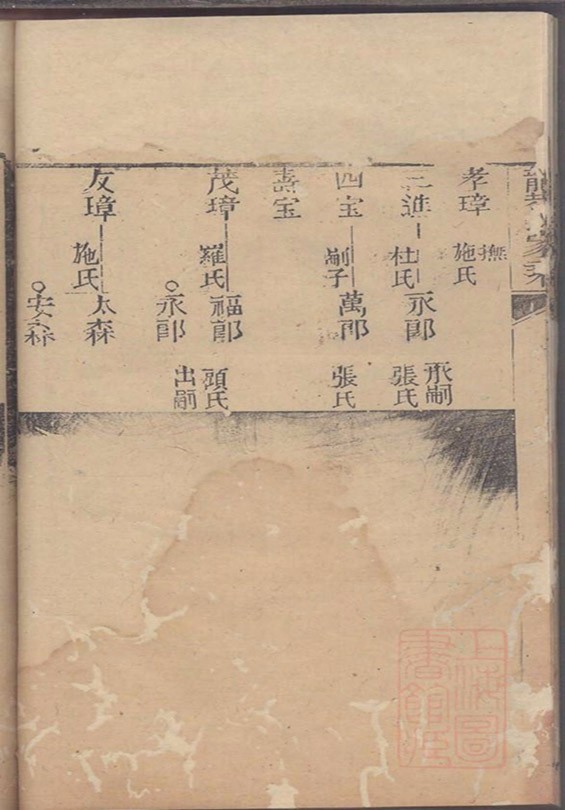 孝璋
撫
施氏
三進
杜氏
永郎
承嗣
張氏
四宝
嗣子
萬郎
張氏
壽宝
茂璋
羅氏
福郎
頭氏
永郎
出嗣
友璋
施氏
太森
安森
上海圖
書館藏